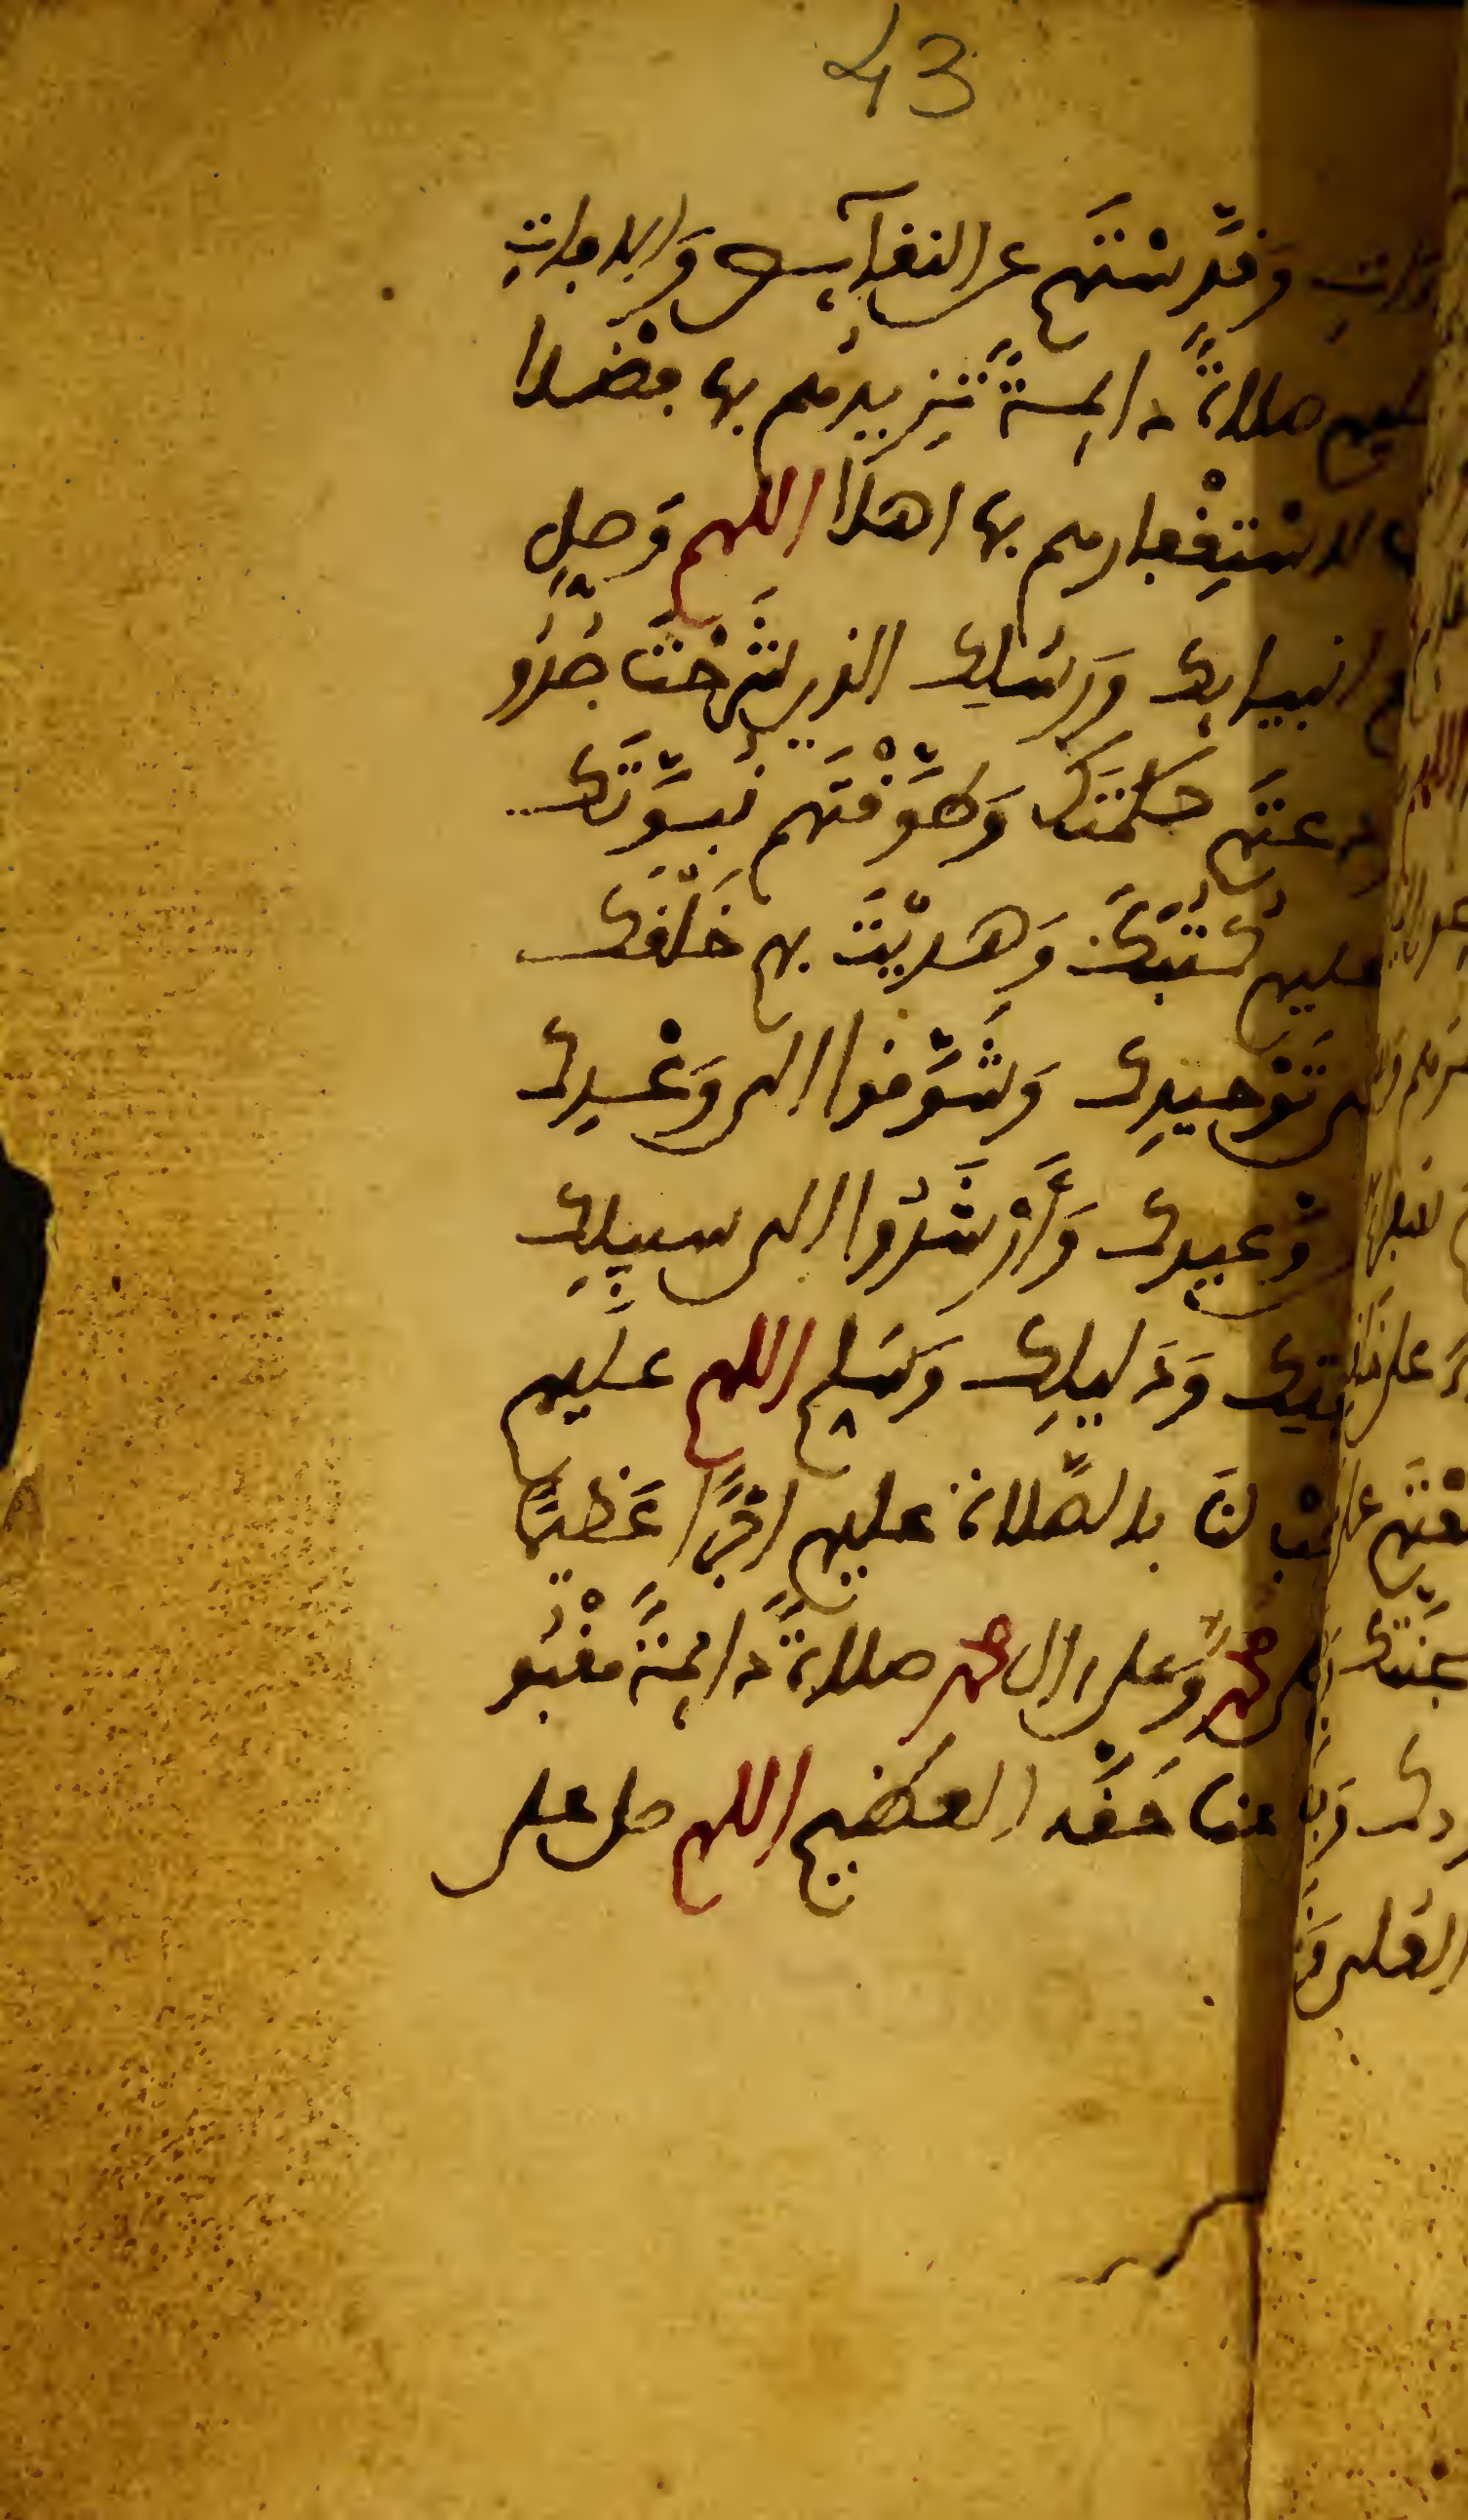 43
وَقَدَّسْتَهُم عن النقآيِص وَالافاتِ
صلاةً دايمةً تَزِيدُهم بها فضْلا
لاسْتِغْفارهم بها اهلا اللهم وَصلِّ
انبيايِك وَرسُلِك الذين شَرَحْتَ صُدُو
حكمتَك وَطوَّقْتَهم نُبوَّتَك
عليهم كُتُبَك وَهديْتَ بهم خَلْقَك
تَوْحيدِك وَشَوَّقوا الى وَعْدِك
وَعيدِك وَأَرْشَدُوا الى سبيلِك
وَدَليلِك وَسَلِّم اللهم عليهم
لنَا بالصَّلاة عليهم اجْرًا عَظيمًا
محمد وَعلى ال محمد صلاةً دايمةً مقْبُو
عنا حَقَّه العظيم اللهم صل على